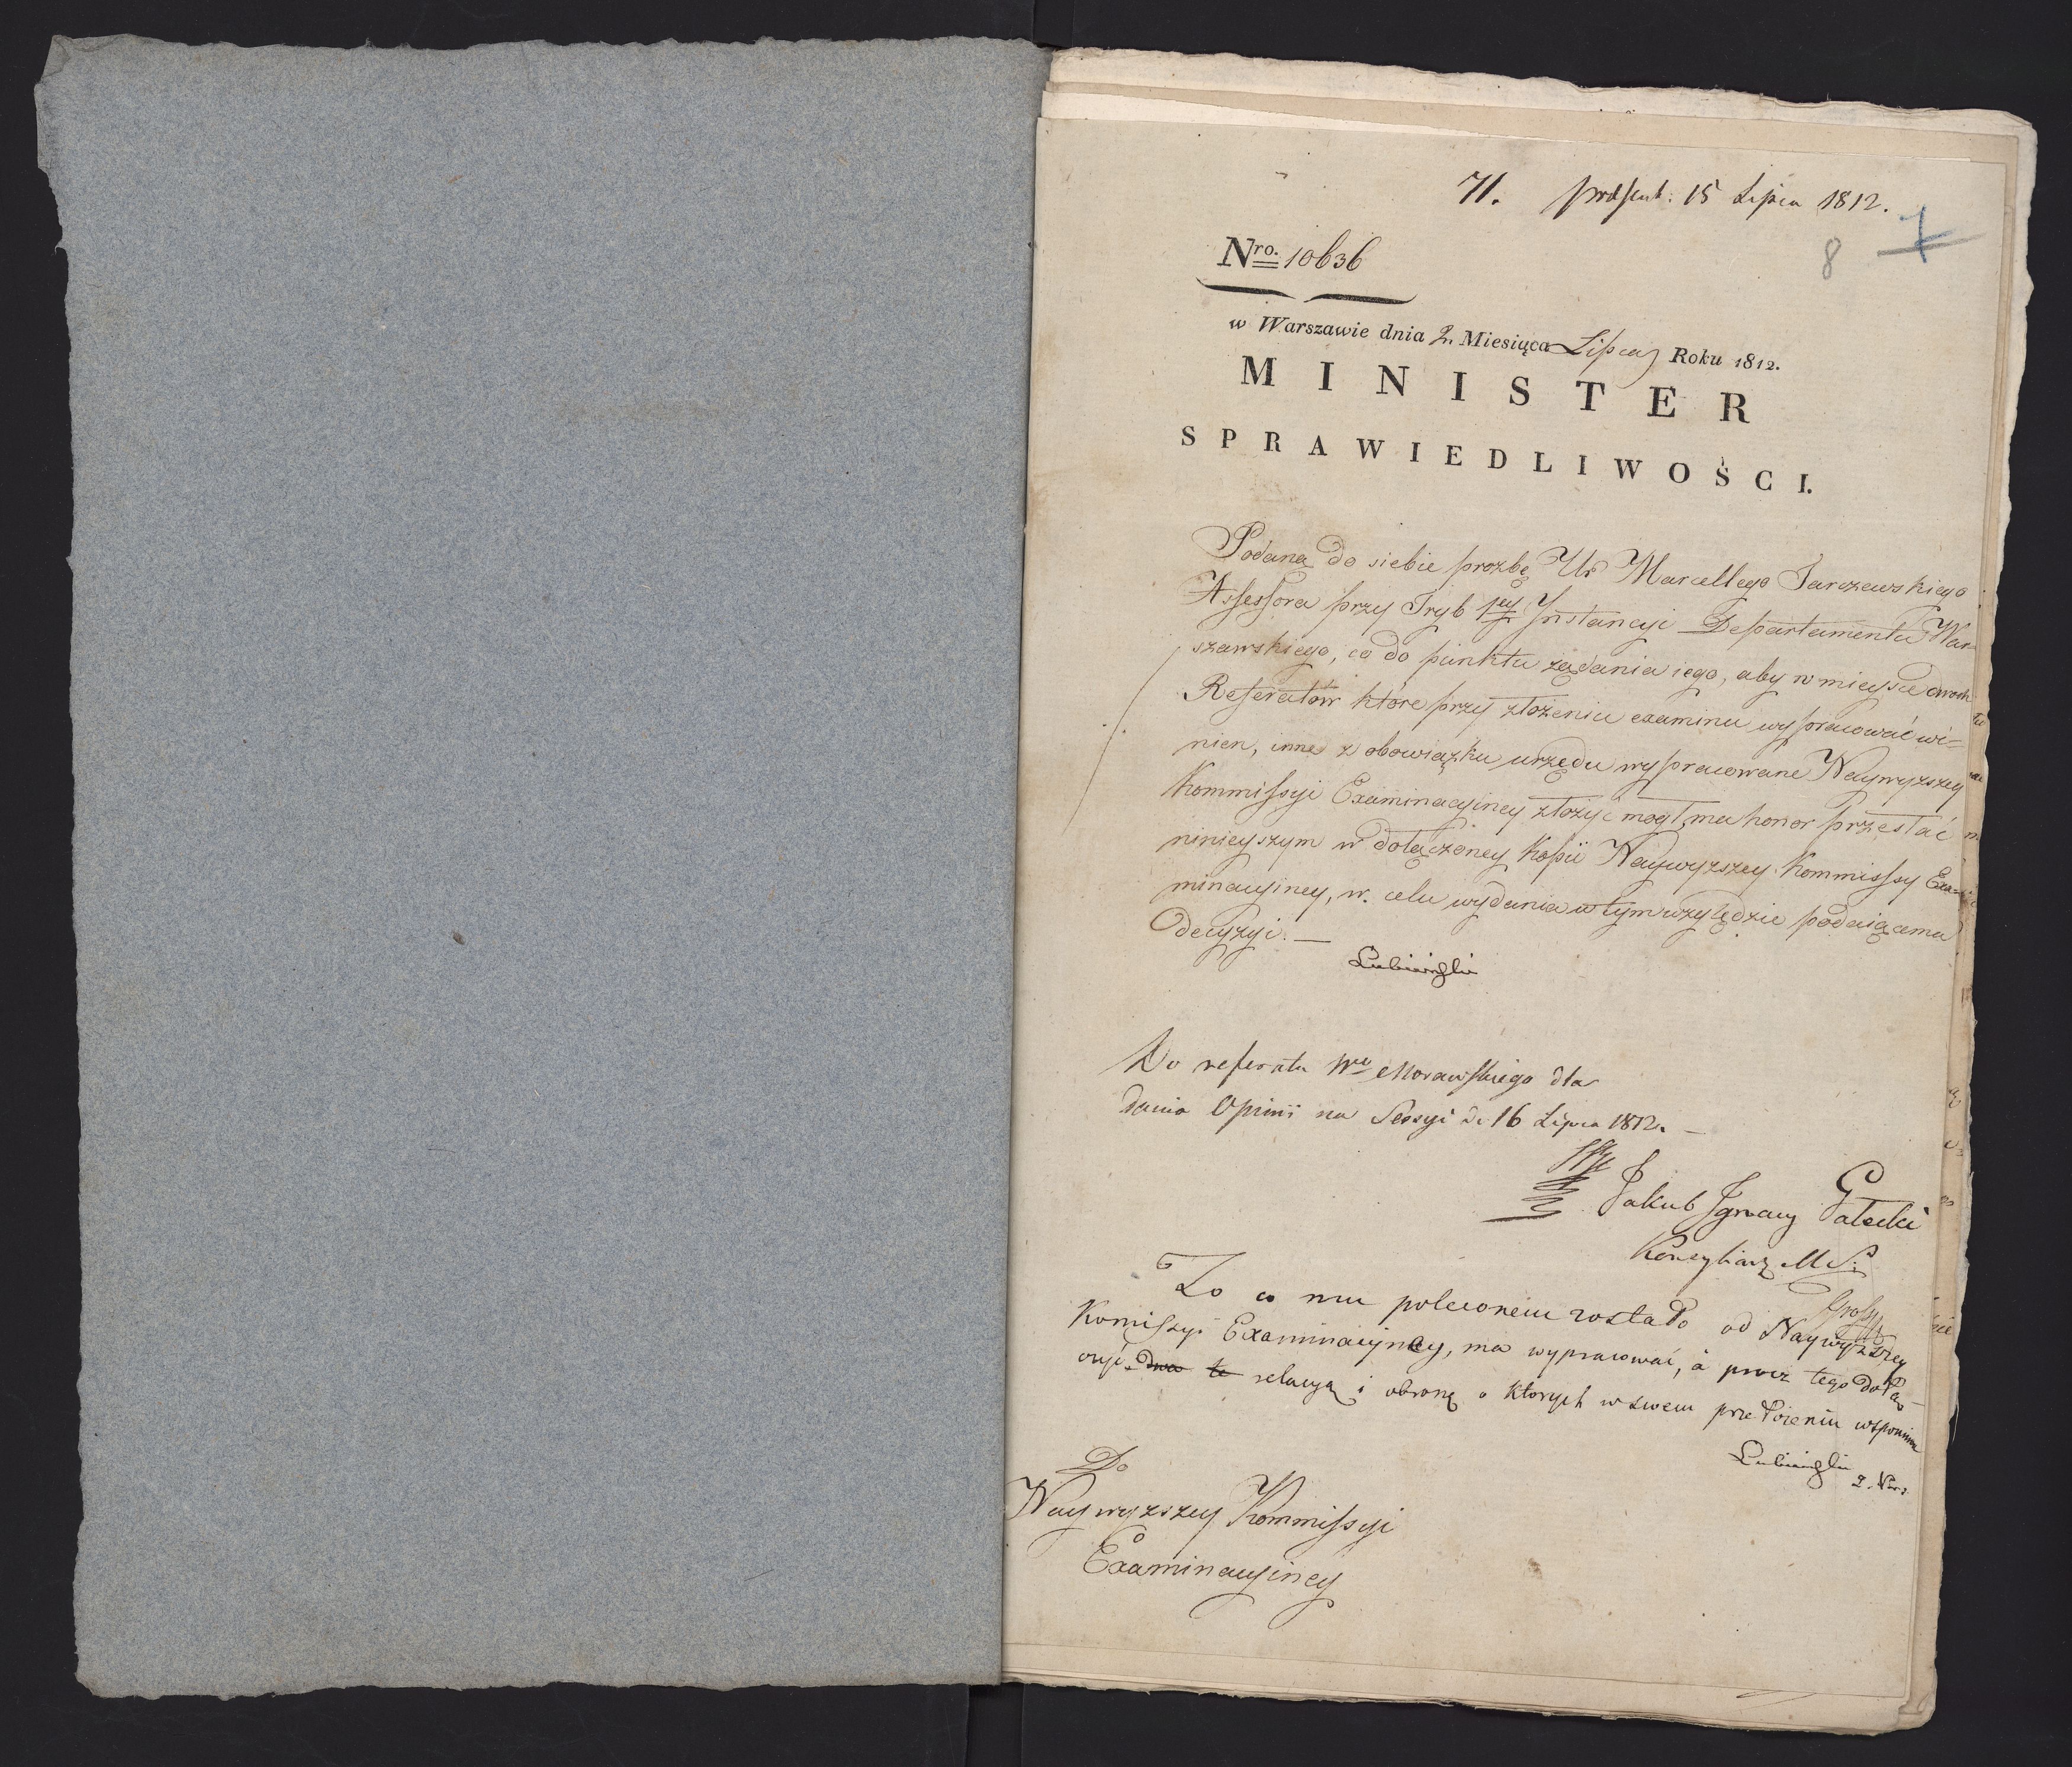 71. præsent: 15 Lipca 1812.
8 7
Nro. 10636
w Warszawie dnia 2. Miesiąca Lipca Roku 1812.
MINISTER
SPRAWIEDLIWOŚCI.
Podaną do siebie prozbę Ur Marcellego Jarczewskiego
Assessora przy Tryb 1ey Instancyi Departamentu War-
szawskiego, co do punktu żądania iego, aby w mieysce dwoch
Referatów które przy złożeniu examinu wypracować wi=
nien, inne z obowiązku urzędu wypracowane Naywyzszey
Kommissyi Examinacyiney złożyć mogł, ma honor przesłać
ninieyszym w dołączoney kopii Naywyzszey Kommissy Exa=
minacyiney, w celu wydania w tym względzie podaiącemu
decyzyi. —
Lubieński
Do referatu Wo Morawskiego dla
dania Opinii na Sessyi d. 16 Lipca 1812. —
Jakub Ignacy Gałecki
Konsyliarz M S.
To co mu poleconem zostało od Naywyższey
Komissyi Examinacyiney, ma wypracować, à procz tego dołą-
czyć dwa te relacyą i obronę o ktorych w swem przełożeniu wspomina
Lubieński
Do
Naywyzszey Kommissyi
Examinacyiney